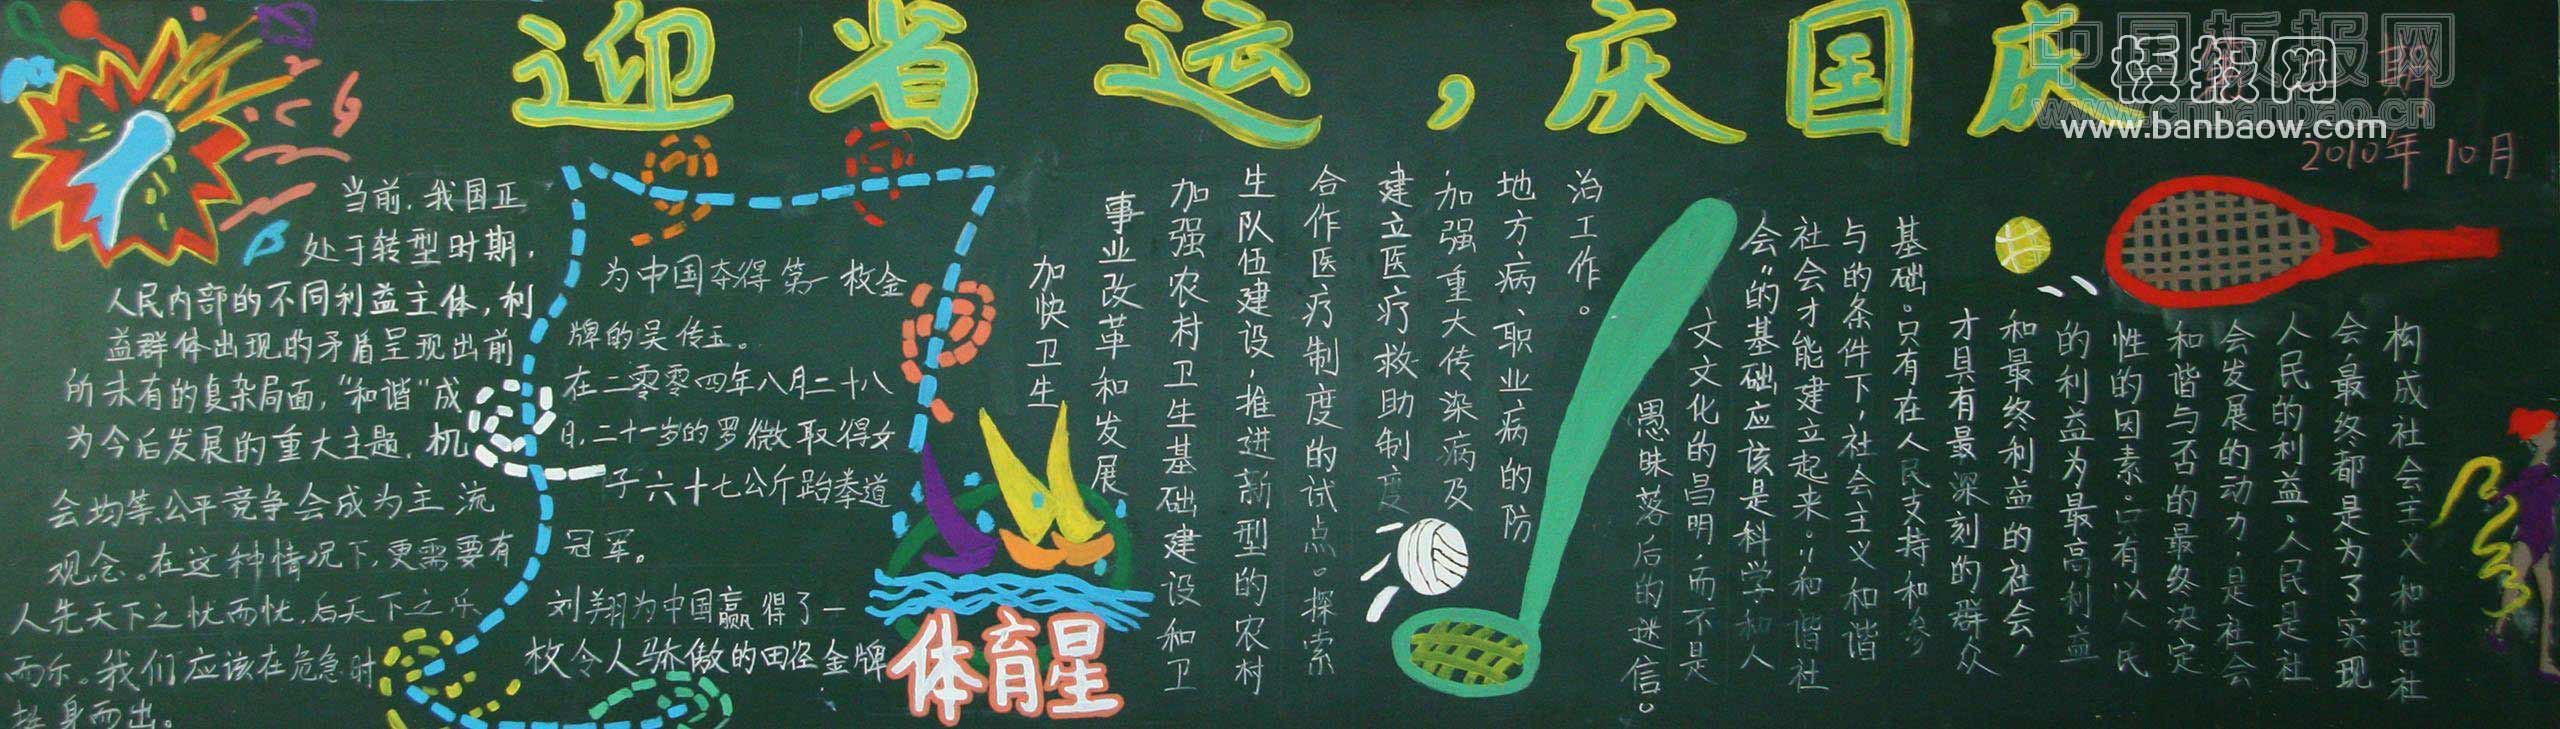 迎省运，庆国庆
期
2010年10月
中国板报网
板报网
www.cnbanbao.cn
www.banbaow.com
当前，我国正
处于转型时期，
人民内部的不同利益主体，利
益群体出现的矛盾呈现出前
所未有的复杂局面，"和谐"成
为今后发展的重大主题，机
会均等、公平竞争会成为主流
观念。在这种情况下，更需要有
人先天下之忧而忧，后天下之乐
而乐。我们应该在危急时
挺身而出。
为中国夺得第一枚金
牌的吴传玉。
在二零零四年八月二十八
日，二十一岁的罗微取得女
子六十七公斤跆拳道
冠军。
刘翔为中国赢得了一
枚令人骄傲的田径金牌
体育星
加快卫生
事业改革和发展
加强农村卫生基础建设和卫
生队伍建设，推进新型的农村
合作医疗制度的试点。探索
建立医疗救助制度
加强重大传染病及
地方病、职业病的防
治工作。
构成社会主义和谐社
会最终都是为了实现
人民的利益。人民是社
会发展的动力，是社会
和谐与否的最终决定
性的因素。只有以人民
的利益为最高利益
和最终利益的社会，
才具有最深刻的群众
基础。只有在人民支持和参
与的条件下，社会主义和谐
社会才能建立起来。"和谐社
会"的基础应该是科学和人
文文化的昌明，而不是
愚昧落后的迷信。